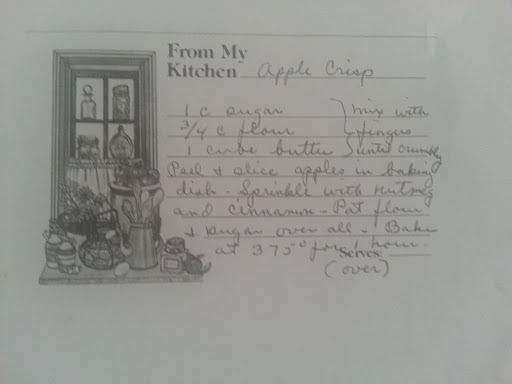 From My
Kitchen Apple Crisp
1 c sugar } mix with
3/4 c flour } fingers
1 cube butter } until crumbly
Peel & slice apples in baking
dish - Sprinkle with nutmeg
and cinnamon - Pat flour
& sugar over all - Bake
at 375° for 1 hour.
Serves
(over)